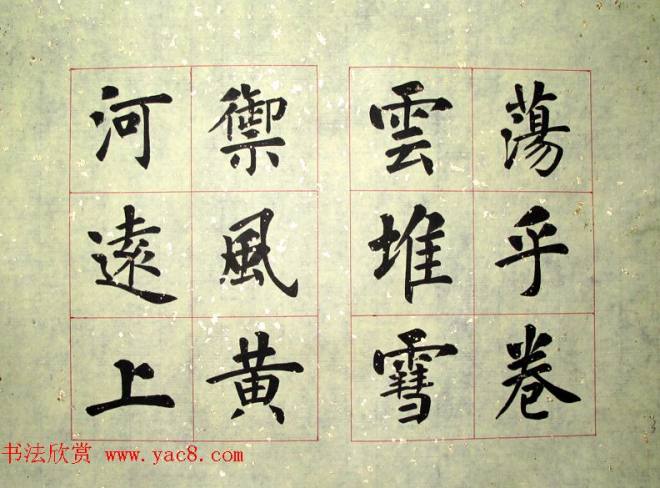 蕩乎卷
雲堆雪
禦風黄
河遠上
书法欣赏 www.yac8.com